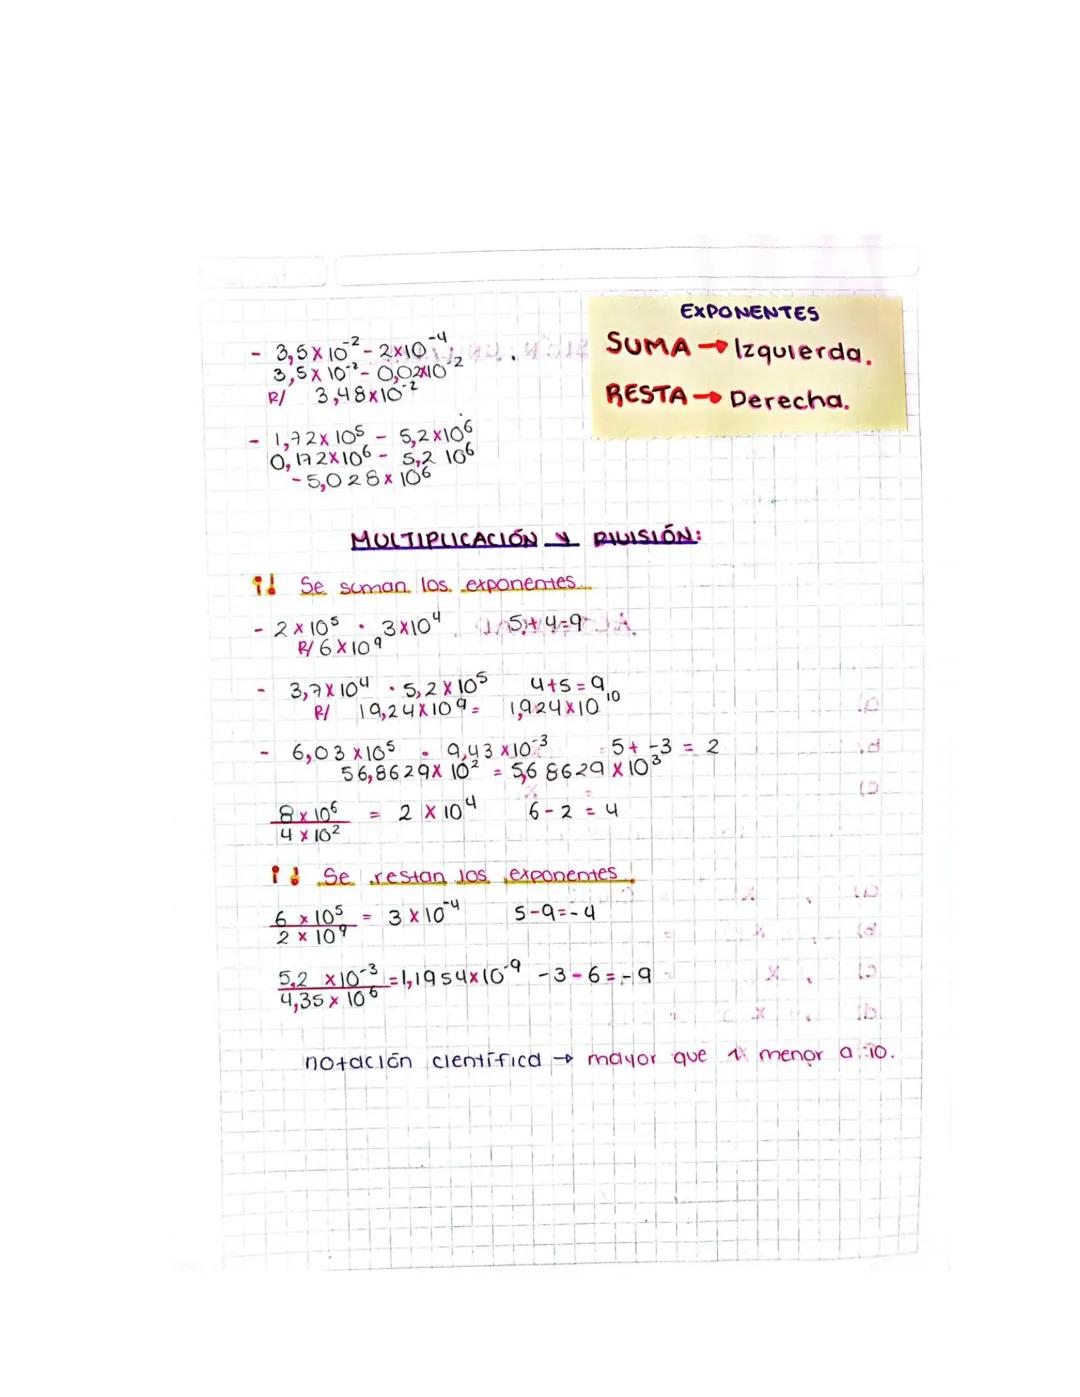 EXPONENTES
SUMA → Izquierda.
RESTA → Derecha.
- 3,5 x 10⁻² - 2x10⁻⁴
3,5 x 10⁻² - 0,02x10⁻²
R/ 3,48x10⁻²
- 1,72x 10⁵ - 5,2x10⁶
0,172x10⁶ - 5,2 10⁶
-5,028x 10⁶
MULTIPLICACIÓN Y DIVISIÓN:
¡! Se suman los exponentes
- 2 x 10⁵ · 3x10⁴ 5+4=9
R/ 6 x 10⁹
- 3,7x 10⁴ · 5,2 x 10⁵ 4+5=9
R/ 19,24x10⁹ = 1,924x10¹⁰
- 6,03 x10⁵ · 9,43 x10⁻³ 5+ -3 = 2
56,8629x 10² = 5,68629 x10³
8 x 10⁶ = 2 x 10⁴ 6-2 = 4
4 x 10²
¡! Se restan los exponentes
6 x 10⁵ = 3 x10⁻⁴ 5-9=-4
2 x 10⁹
5,2 x10⁻³ =1,1954x10⁻⁹ -3-6=-9
4,35x 10⁶
notación científica → mayor que 1 menor a 10.